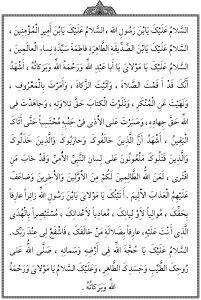 السَّلامُ عَلَيْكَ يَابْنَ رَسُولِ اللهِ ، السَّلامُ عَلَيْكَ يَابْنَ أَمِيرِ الْمُؤْمِنِينَ ،
السَّلامُ عَلَيْكَ يَابْنَ الصِّدِّيقَةِ الطَّاهِرَةِ فَاطِمَةَ سَيِّدَةِ نِسَاءِ الْعَالَمِينَ ،
السَّلامُ عَلَيْكَ يَا مَوْلايَ يَا أَبَا عَبْدِ اللهِ وَرَحْمَةُ اللهِ وَبَرَكَاتُهُ ، أَشْهَدُ
أَنَّكَ قَدْ أَقَمْتَ الصَّلاةَ ، وَآتَيْتَ الزَّكَاةَ ، وَأَمَرْتَ بِالْمَعْرُوفِ ،
وَنَهَيْتَ عَنِ الْمُنْكَرِ ، وَتَلَوْتَ الْكِتَابَ حَقَّ تِلاوَتِهِ ، وَجَاهَدْتَ فِي
اللهِ حَقَّ جِهَادِهِ ، وَصَبَرْتَ عَلَى الأَذَى فِي جَنْبِهِ مُحْتَسِباً حَتَّى أَتَاكَ
الْيَقِينُ ، أَشْهَدُ أَنَّ الَّذِينَ خَالَفُوكَ وَحَارَبُوكَ وَالَّذِينَ خَذَلُوكَ
وَالَّذِينَ قَتَلُوكَ مَلْعُونُونَ عَلَى لِسَانِ النَّبِيِّ الأُمِّيِّ وَقَدْ خَابَ مَنِ
افْتَرَى ، لَعَنَ اللهُ الظَّالِمِينَ لَكُمْ مِنَ الأَوَّلِينَ وَالآخِرِينَ وَضَاعَفَ
عَلَيْهِمُ الْعَذَابَ الأَلِيمَ . أَتَيْتُكَ يَا مَوْلايَ يَابْنَ رَسُولِ اللهِ زَائِراً عَارِفاً
بِحَقِّكَ ، مُوَالِياً لأَوْلِيَائِكَ ، مُعَادِياً لأَعْدَائِكَ ، مُسْتَبْصِراً بِالْهُدَى
الَّذِي أَنْتَ عَلَيْهِ ، عَارِفاً بِضَلالَةِ مَنْ خَالَفَكَ ، فَاشْفَعْ لِي عِنْدَ رَبِّكَ .
السَّلامُ عَلَيْكَ يَا حُجَّةَ اللهِ فِي أَرْضِهِ وَسَمَائِهِ ، صَلَّى اللهُ عَلَى
رُوحِكَ الطَّيِّبِ وَجَسَدِكَ الطَّاهِرِ ، وَعَلَيْكَ السَّلامُ يَا مَوْلايَ وَرَحْمَةُ
اللهِ وَبَرَكَاتُهُ .